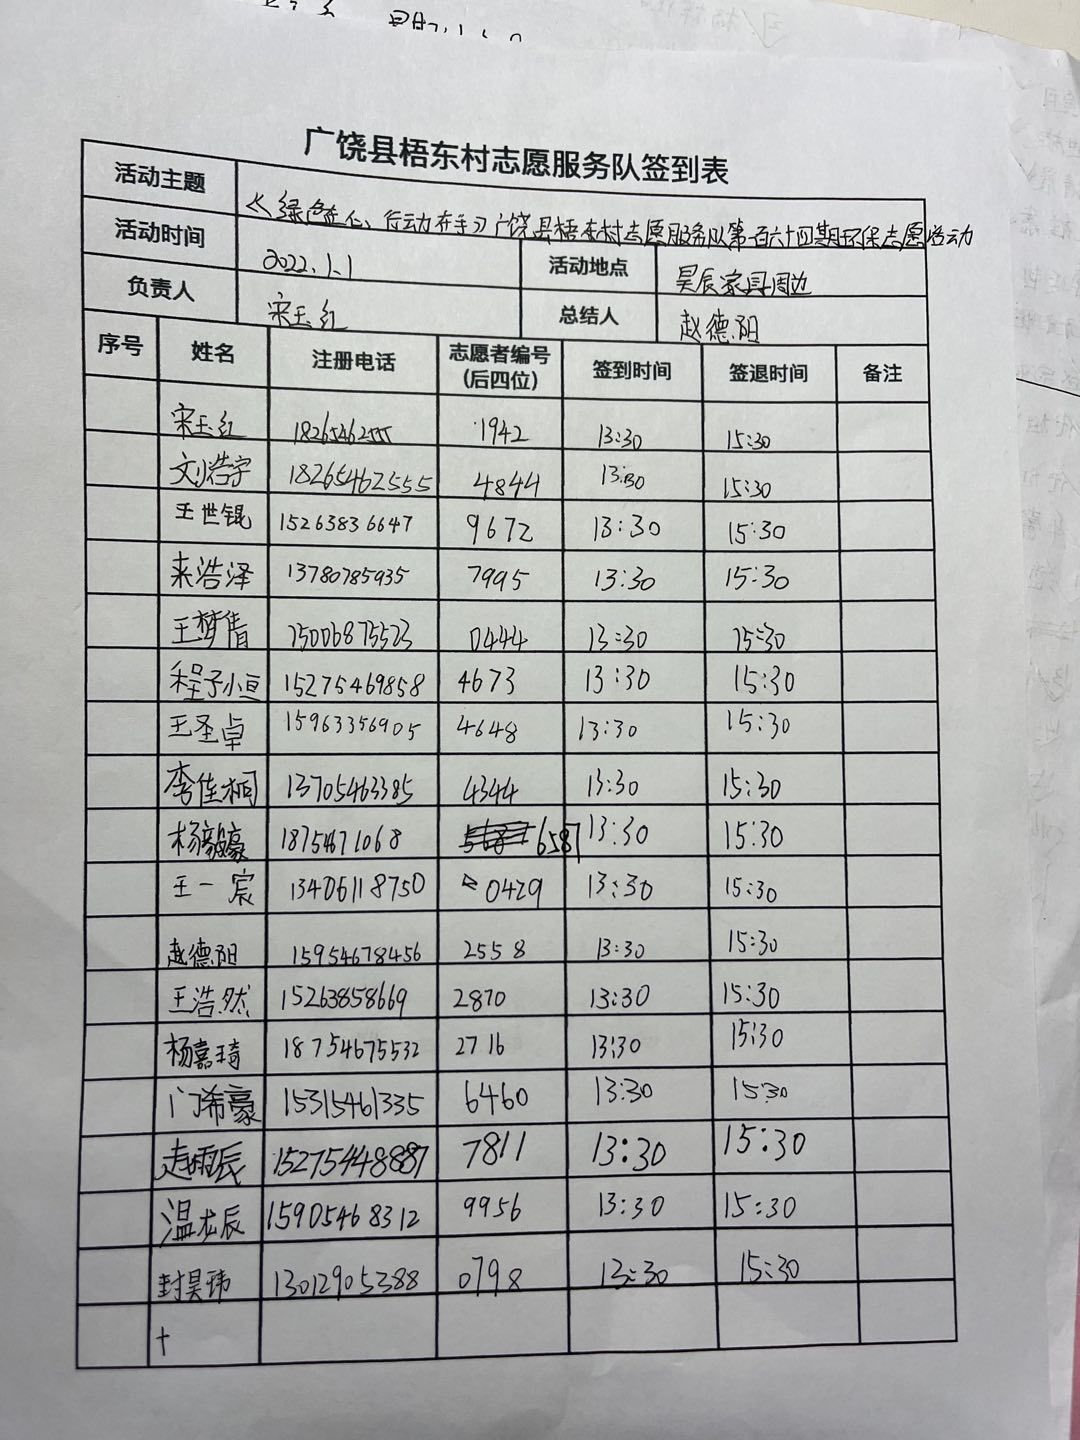 广饶县梧东村志愿服务队签到表
活动主题 《绿色在心、行动在手》广饶县梧东村志愿服务队第一百六十四期环保志愿活动
活动时间 2022.1.1 活动地点 昊辰家具周边
负责人 宋玉红 总结人 赵德阳
序号 姓名 注册电话 志愿者编号(后四位) 签到时间 签退时间 备注
宋玉红 18265462555 1942 13:30 15:30
刘浩宇 18265462555 4844 13:30 15:30
王世锟 15263836647 9672 13:30 15:30
来浩泽 13780785935 7995 13:30 15:30
王梦倩 15006875523 0444 13:30 15:30
程子恒 15275469858 4673 13:30 15:30
王圣卓 15963356905 4648 13:30 15:30
李佳桐 13705463385 4344 13:30 15:30
杨毅豪 18754671068 6587 13:30 15:30
王一宸 13406118750 0429 13:30 15:30
赵德阳 15954678456 2558 13:30 15:30
王浩然 15263858669 2870 13:30 15:30
杨嘉琦 18754675532 2716 13:30 15:30
门希豪 15315461335 6460 13:30 15:30
赵雨辰 15275448887 7811 13:30 15:30
温龙辰 15905468312 9956 13:30 15:30
封昊玮 13012905388 0798 13:30 15:30